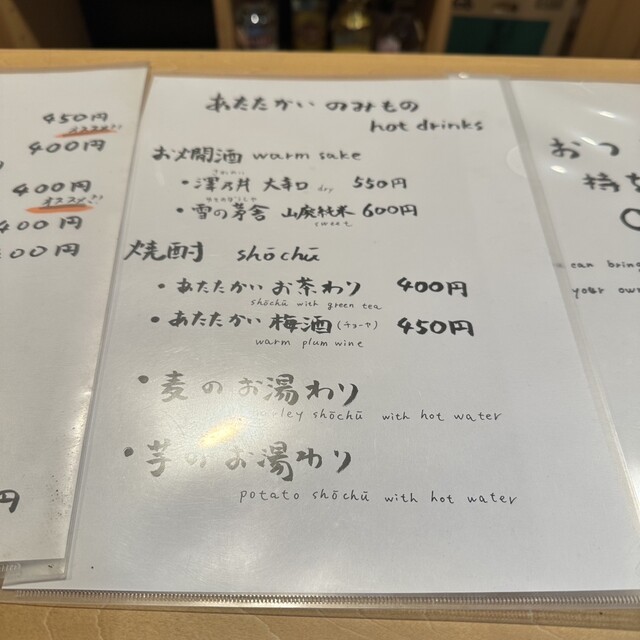 450円
オススメ!!
400円
400円
オススメ!!
400円
400円
円
あたたかい のみもの
hot drinks
お燗酒 warm sake
・澤乃井 大辛口 dry 550円
・雪の茅舎 山廃純米 600円
sweet
焼酎 shōchū
・あたたかい お茶わり 400円
shōchū with green tea
・あたたかい 梅酒 (チョーヤ) 450円
warm plum wine
・麦のお湯わり
ley shōchū with hot water
・芋のお湯わり
potato shōchū with hot water
おつ
持
can bring
your own